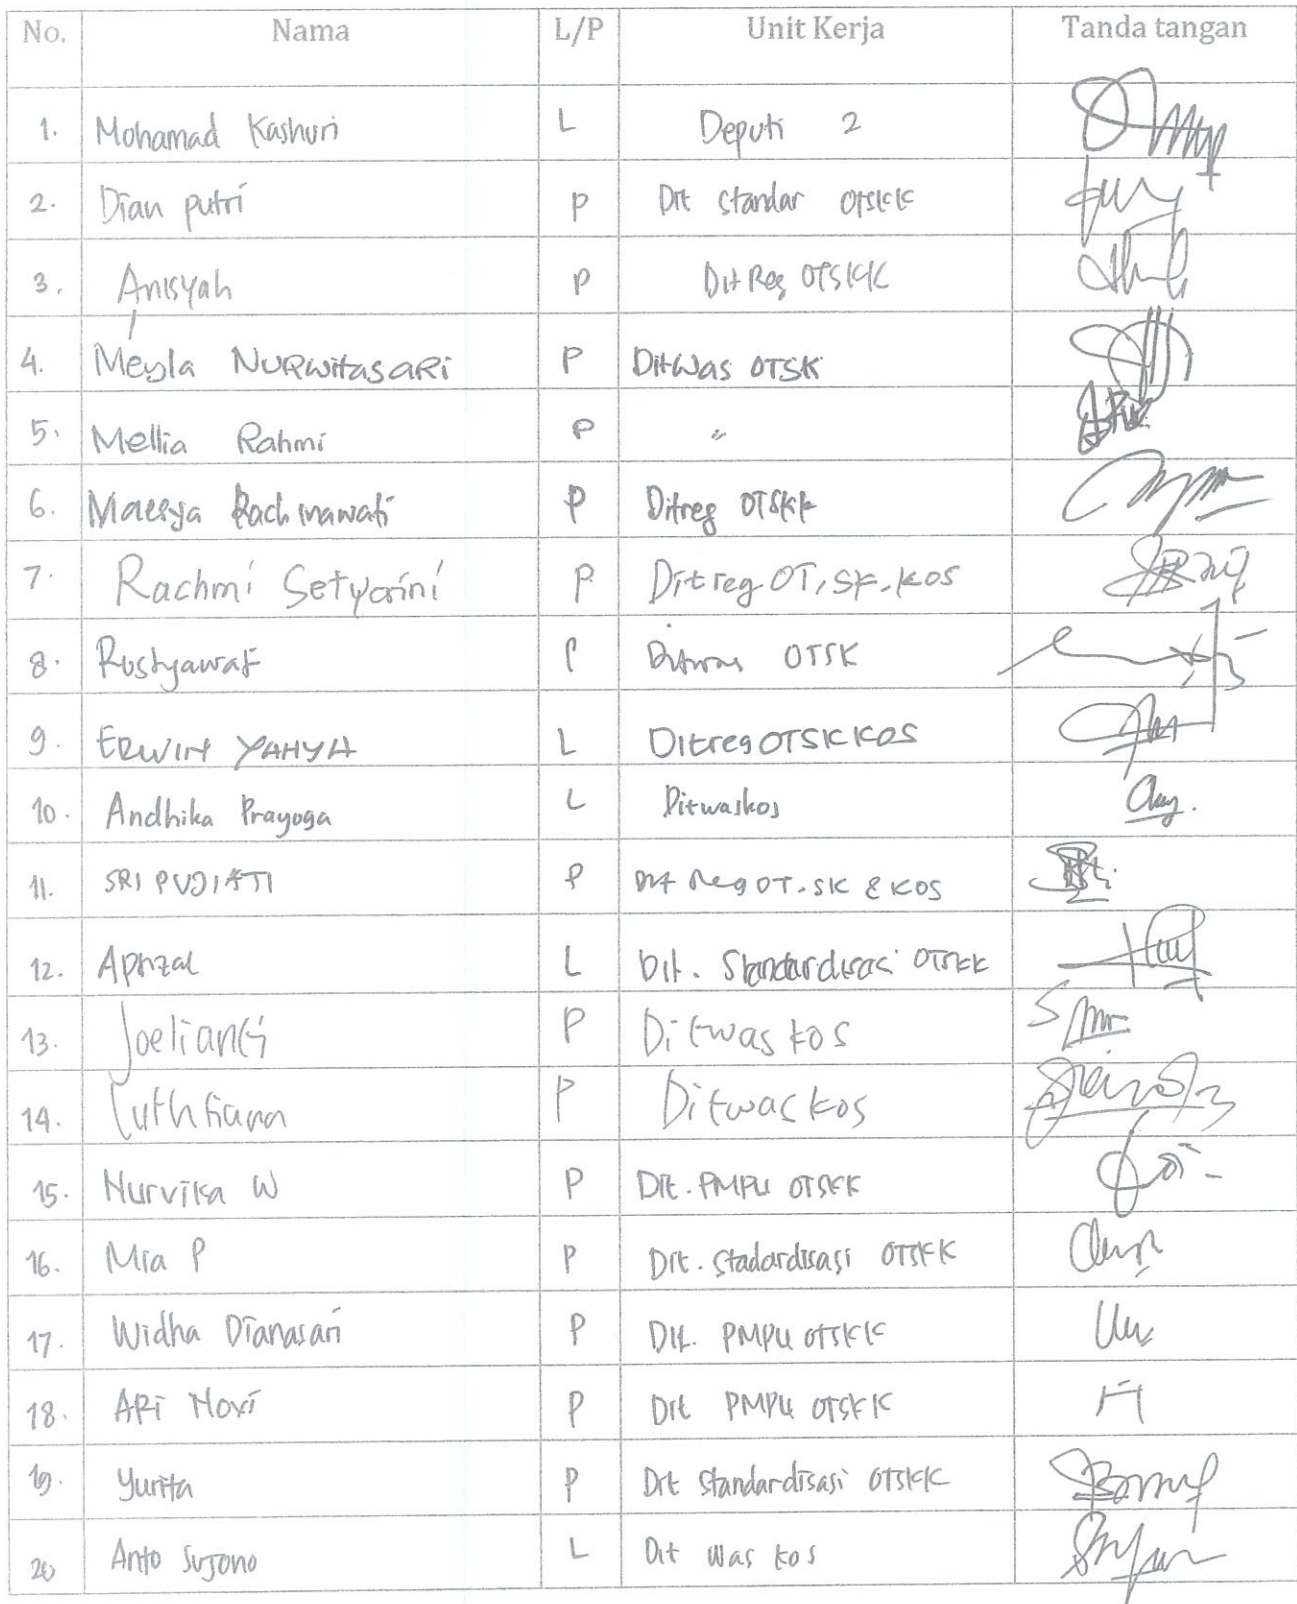 No. Nama L/P Unit Kerja Tanda tangan
1. Mohamad Kashuri L Deputi 2
2. Dian putri P Dit Standar OTSKK
3. Anisyah P Dit Reg OTSKK
4. Meyla NURwitasaRi P DitWas OTSK
5. Mellia Rahmi P "
6. Maesya Rachmawati P Ditreg OTSKK
7. Rachmi Setyorini P Ditreg OT, SK, KOS
8. Rustyawati P Ditwas OTSK
9. ERWIN YAHYA L Ditreg OTSKKOS
10. Andhika Prayoga L Ditwaskos
11. SRI PUJIATI P Dit Reg OT. SK & KOS
12. Aprizal L Dit. Standardisasi OTSKK
13. Joelianti P Ditwas kos
14. Luthfiana P Ditwas kos
15. Nurvika W P Dit. PMPU OTSKK
16. Mia P P Dit. Stadardisasi OTSKK
17. Widha Dianasari P Dit. PMPU OTSKK
18. ARi Novi P Dit PMPU OTSKK
19. Yurita P Dit Standardisasi OTSKK
20 Anto Sujono L Dit Was kos